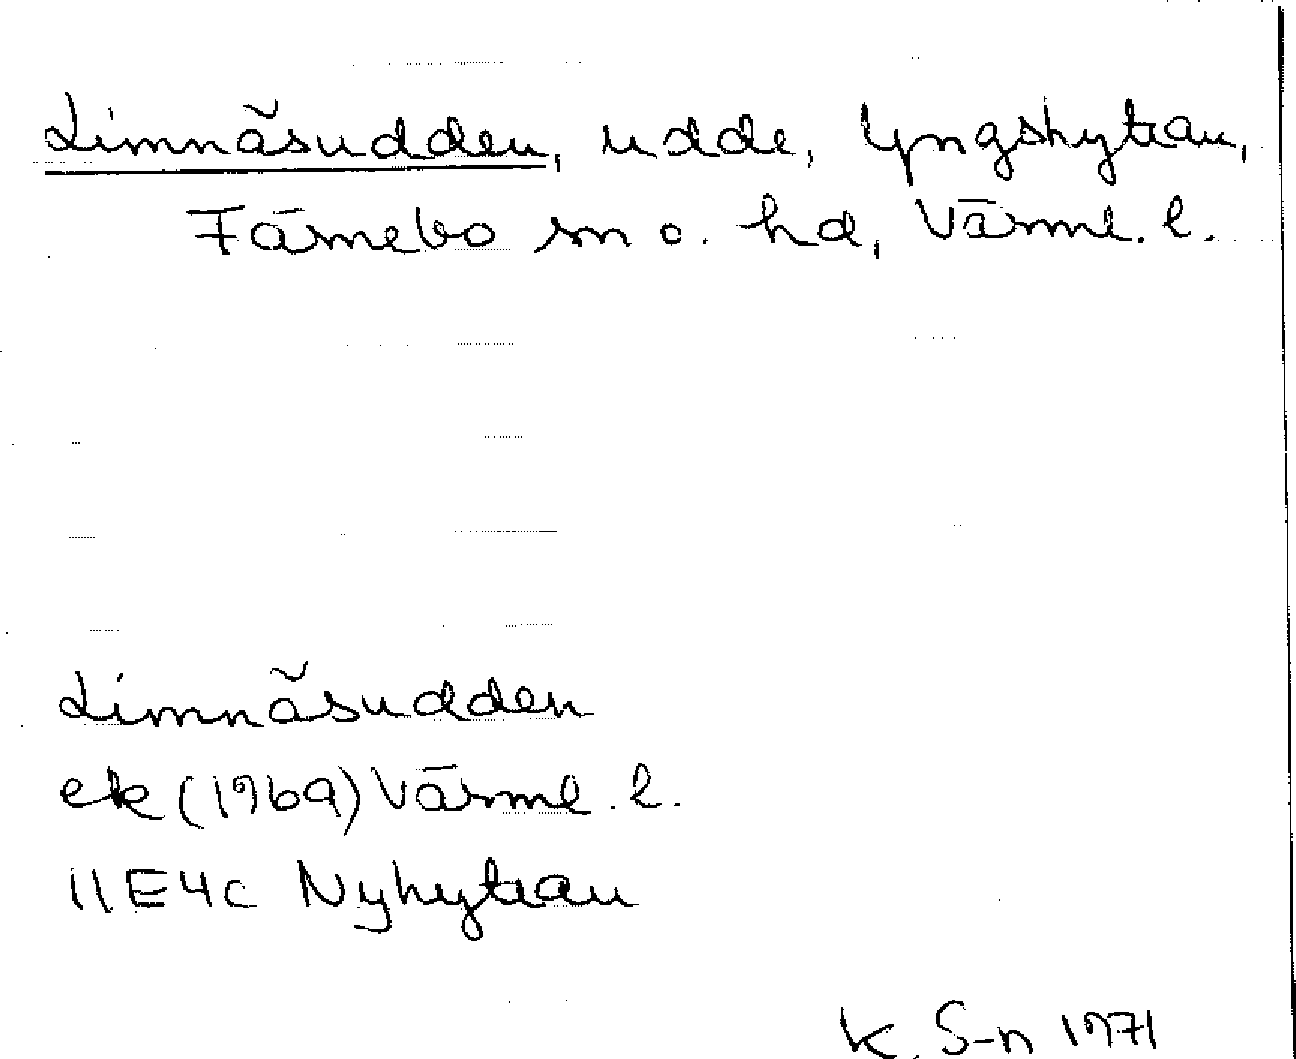 Limnäsudden, udde, Yngshyttan,
Färnebo sn o. hd, Värml. l.
Limnäsudden
ek (1969) Värml. l.
11E4c Nyhyttan
K. S-n 1971